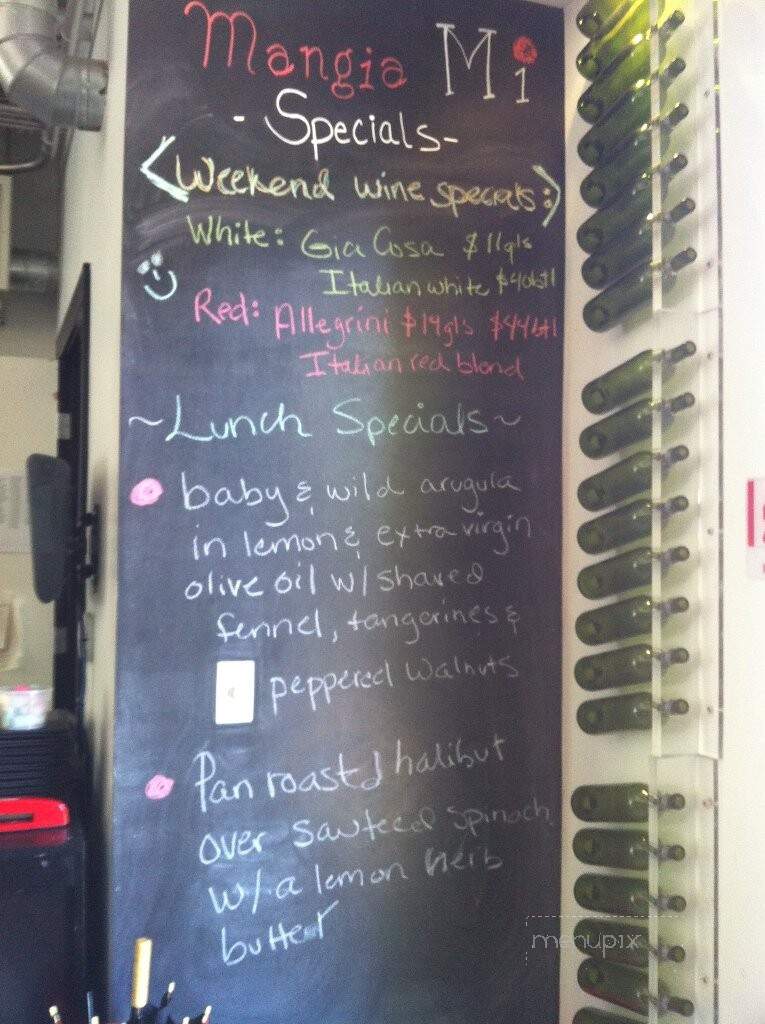 Mangia Mi
- Specials -
<Weekend wine specials:>
White: Gia Cosa $11gls
Italian white $40btl
Red: Allegrini $14gls $44btl
Italian red blend
~Lunch Specials~
baby & wild arugula
in lemon & extra virgin
olive oil w/ shaved
fennel, tangerines &
peppered walnuts
Pan roastd halibut
over sauteed spinach
w/ a lemon herb
butter
menupix